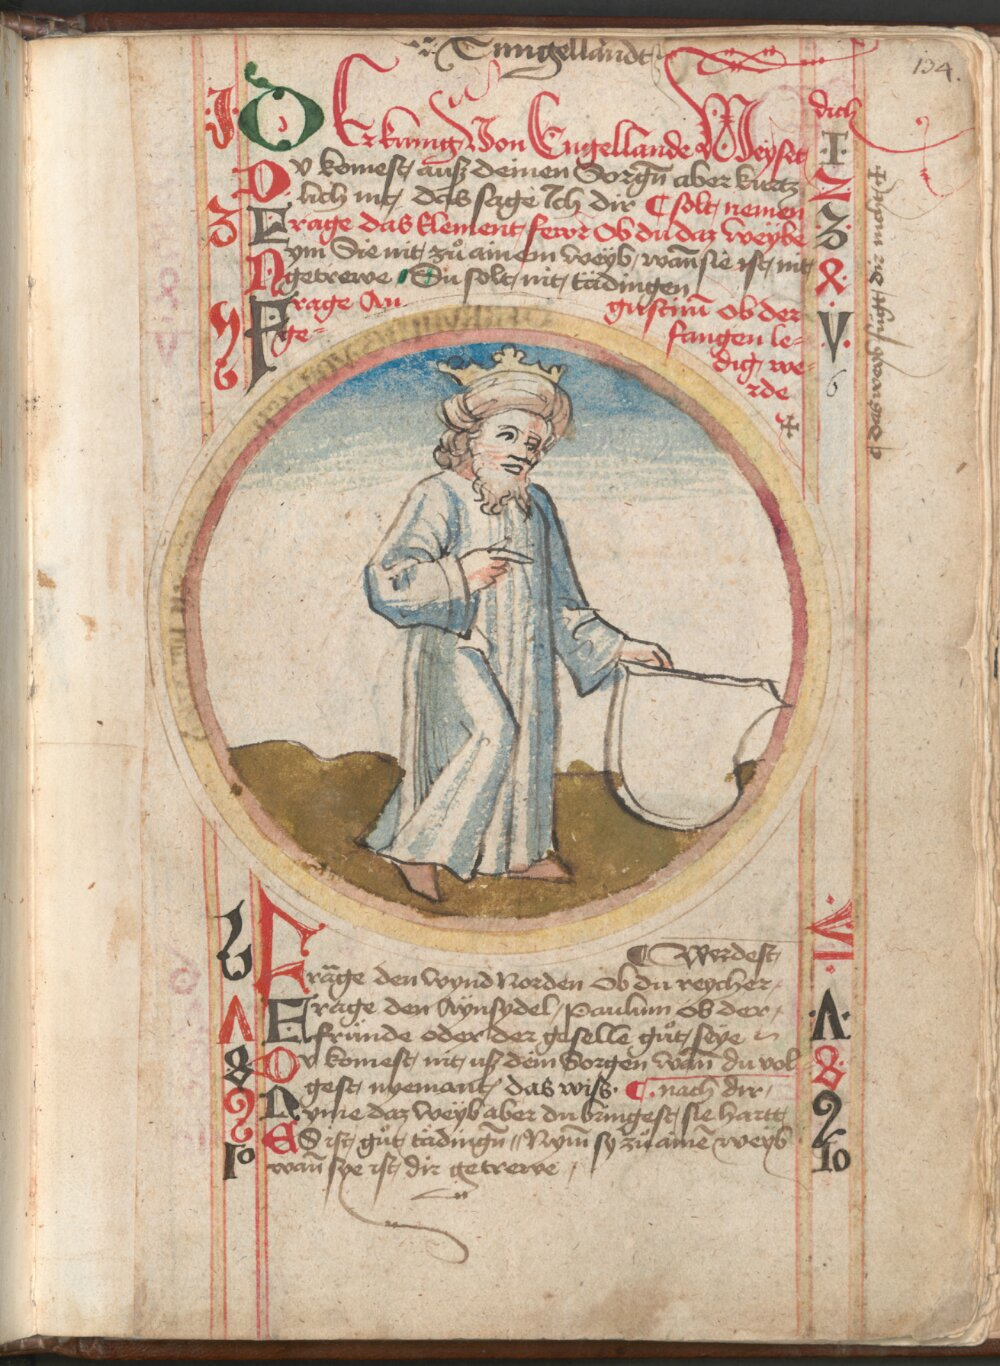 Engellandt
134.
Der kunig Von Engellande Weyset dich
·I· Du komest auß deinen Sorgn aber kurtz ·I·
lich nit das sage Ich dir ¶ solt nemen 2
3 Frage das Element fewr Ob du daz weybe 3
Nym Sie nit zů ainem weyb wann sie ist nit
getrewe Du solt nit tädingen 8
Frage Au gustinum ob der V
ge= fangen le=
6 dig we= 6
rde
¶ das weyb fügt dir nicht
¶ Werdest
Frage den wynd Norden Ob du reycher VI
Frage den Aynsydel Paulum ob der Λ
fründe oder der gaselle gůt seye
8 Du komest nit uß dem Sorgen wann du vol 8
gest nyemant das wiß. ¶. nach dir
9 Nyme daz weyb aber du bringest sie hartt 9
Es ist gůt tädingn Nym sy zů ainē weyb
10 wañ sye ist dir getrewe 10